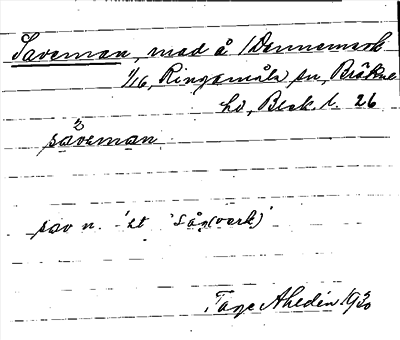 Saveman, mad å 1 Dannemark
1/16, Ringamåla sn, Bräkne
hd, Blek. l. 26
sävəman
sav n. -et 'såg(verk)'
Tage Ahldén 1930